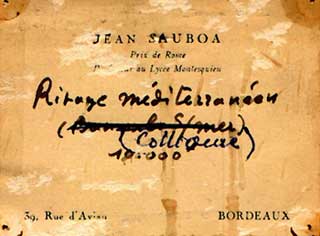 JEAN SAUBOA
Prix de Rome
Professeur au Lycée Montesquieu
Rivage méditerranéen
(Banyuls S/mer)
(Collioure)
10.000
39, Rue d'Aviau
BORDEAUX